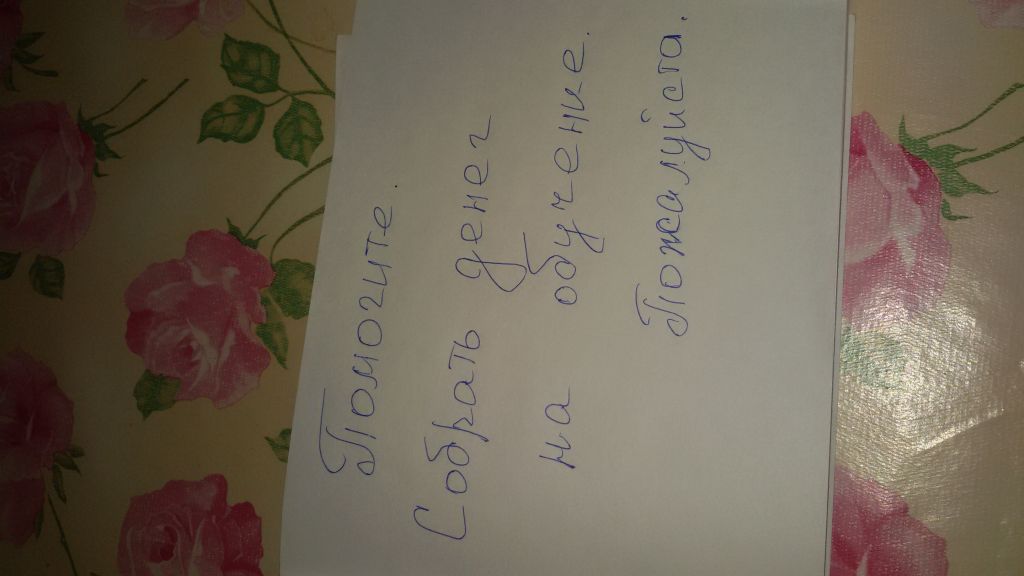 Помогите.
Собрать денег
на обучение.
Пожалуйста.